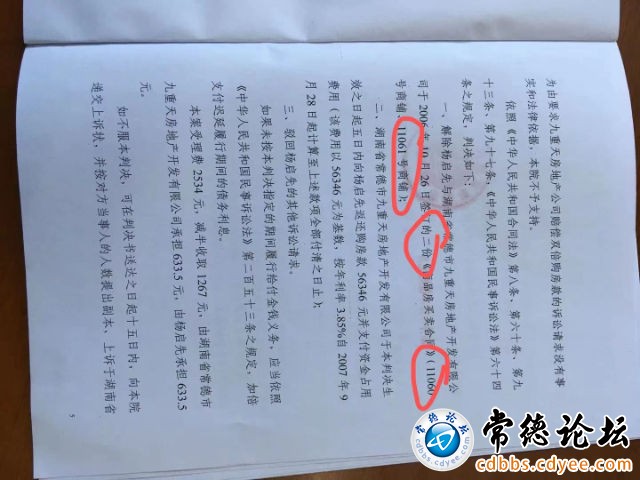 为由要求九重天房地产公司赔偿双倍购房款的诉讼请求没有事
实和法律依据,本院不予支持。
依照《中华人民共和国合同法》第八条、第六十条、第九
十三条、第九十七条《中华人民共和国民事诉讼法》第六十四
条之规定,判决如下:
一、解除杨启先与湖南省常德市九重天房地产开发有限公
司于 2006 年 10 月 26 日签订的二份《商品房买卖合同》(11060
号商铺、11061 号商铺);
二、湖南省常德市九重天房地产开发有限公司于本判决生
效之日起五日内向杨启先返还购房款 56346 元并支付资金占用
费用(该费用以 56346 元为基数,按年利率 3.85%自 2007 年 9
月 28 日起计算至上述款项全部付清之日止);
三、驳回杨启先的其他诉讼请求。
如果未按本判决指定的期间履行给付金钱义务,应当依照
《中华人民共和国民事诉讼法》第二百五十三条之规定,加倍
支付迟延履行期间的债务利息。
本案受理费 2534 元,减半收取 1267 元,由湖南省常德市
九重天房地产开发有限公司承担 633.5 元,由杨启先承担 633.5
元。
如不服本判决,可在判决书送达之日起十五日内,向本院
递交上诉状,并按对方当事人的人数提出副本,上诉于湖南省
5
常德论坛
cdbbs.cdyee.com